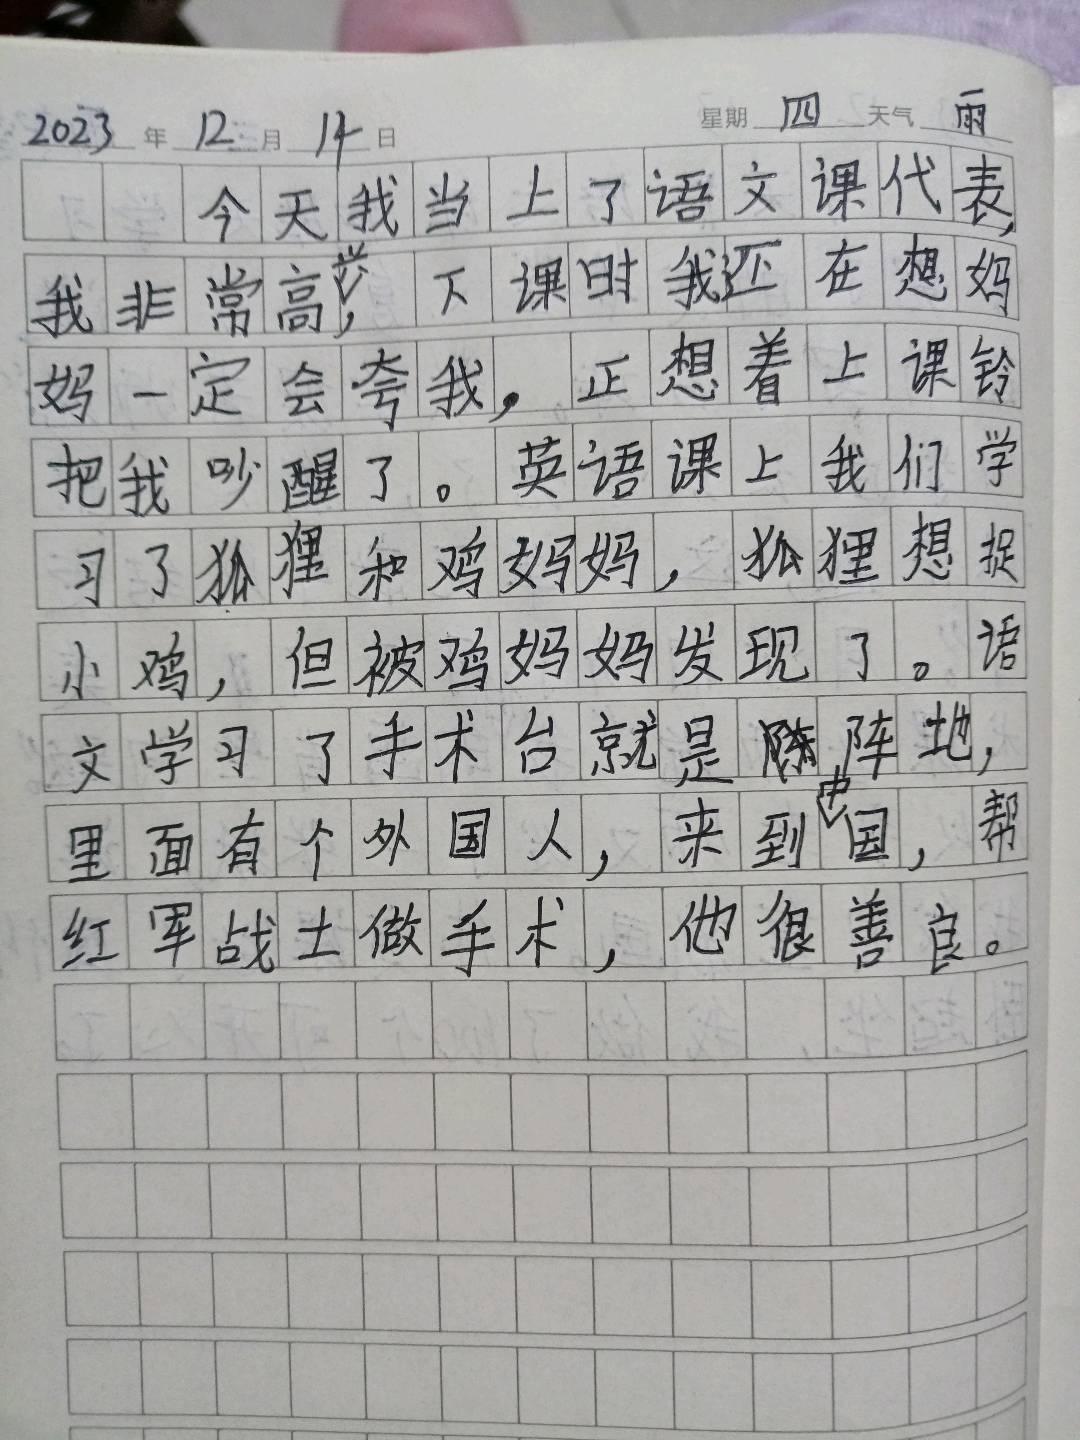 2023年12月14日 星期四 天气雨
今天我当上了语文课代表,
我非常高兴,下课时我还在想妈
妈一定会夸我,正想着上课铃
把我吵醒了。英语课上我们学
习了狐狸和鸡妈妈,狐狸想捉
小鸡,但被鸡妈妈发现了。语
文学习了手术台就是阵地,
里面有个外国人,来到中国,帮
红军战士做手术,他很善良。